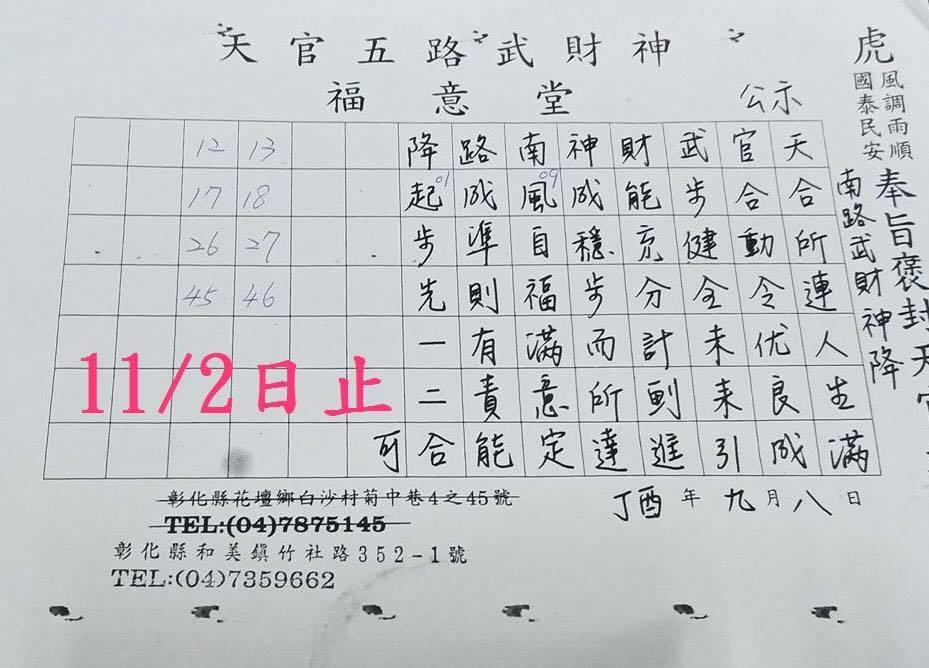 天官五路武財神
福意堂
公示
虎
風調雨順
國泰民安
奉旨褒封天官
南路武財神降
天合所連人生滿
官合動令优良成
武步健全未來引
財能充分計劃進
神成穩步而所達
南風自福滿意定
09
路成準則有責能
降起步先一二合
01
可
12 13
17 18
26 27
45 46
11/2日止
丁酉年九月八日
彰化縣花壇鄉白沙村萄中巷4之45號
TEL:(04)7875145
彰化縣和美鎮竹社路352-1號
TEL:(04)7359662